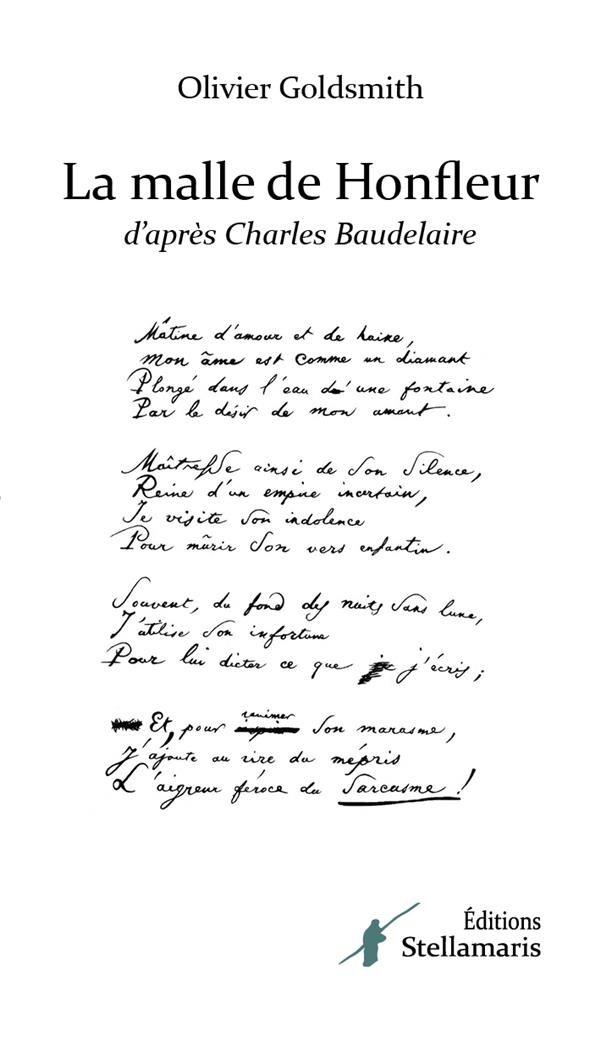 Olivier Goldsmith
La malle de Honfleur
d'après Charles Baudelaire
Mâtine d'amour et de haine,
Mon âme est comme un diamant
Plongé dans l'eau d'une fontaine
Par le désir de mon amant.
Maîtresse ainsi de son silence,
Reine d'un empire incertain,
Je visite son indolence
Pour mûrir son vers enfantin.
Souvent, du fond des nuits sans lune,
J'utilise son infortune
Pour lui dicter ce que j'écris ;
Et, pour ranimer son marasme,
J'ajoute au rire du mépris
L'aigreur féroce du Sarcasme !
Éditions
Stellamaris